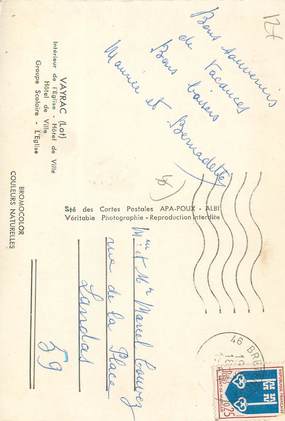 VAYRAC (Lot)
Intérieur de l'Eglise - Hôtel de Ville
Hôtel de Ville
Groupe Scolaire - L'Eglise
BROMOCOLOR
COULEURS NATURELLES
Bons souvenirs
de vacances
Bons baisers
Maurice et Bernadette
Sté des Cartes Postales APA-POUX - ALBI
Véritable Photographie - Reproduction interdite
M et Mme Marcel
rue de la Place
Landas
59
46 BRE
0,25